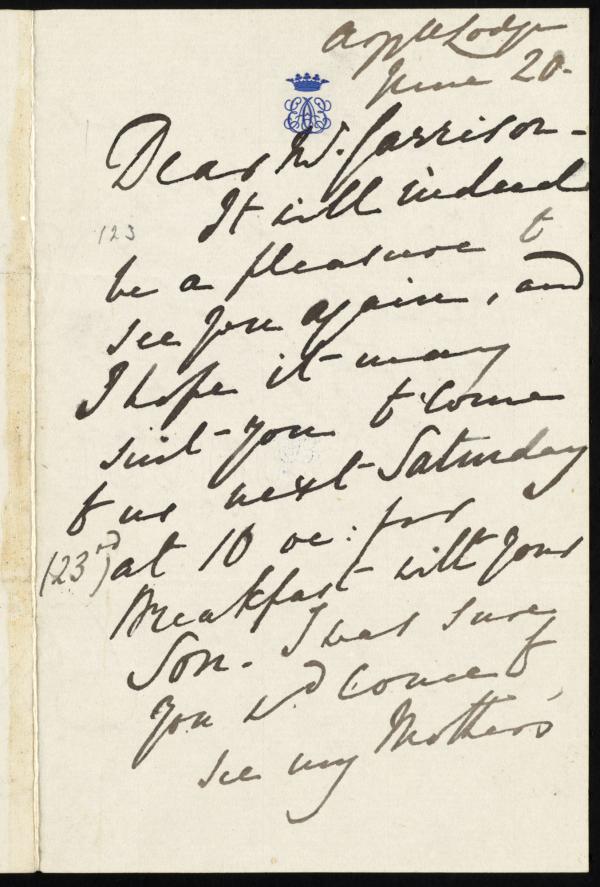 Argyll Lodge
June 20-
Dear Mr. Garrison-
It will indeed
123
be a pleasure to
see you again, and
I hope it may
suit you to come
to us next Saturday
(23rd) at 10 oc: for
Breakfast with your
Son. I was sure
you wd come to
see my Mother's